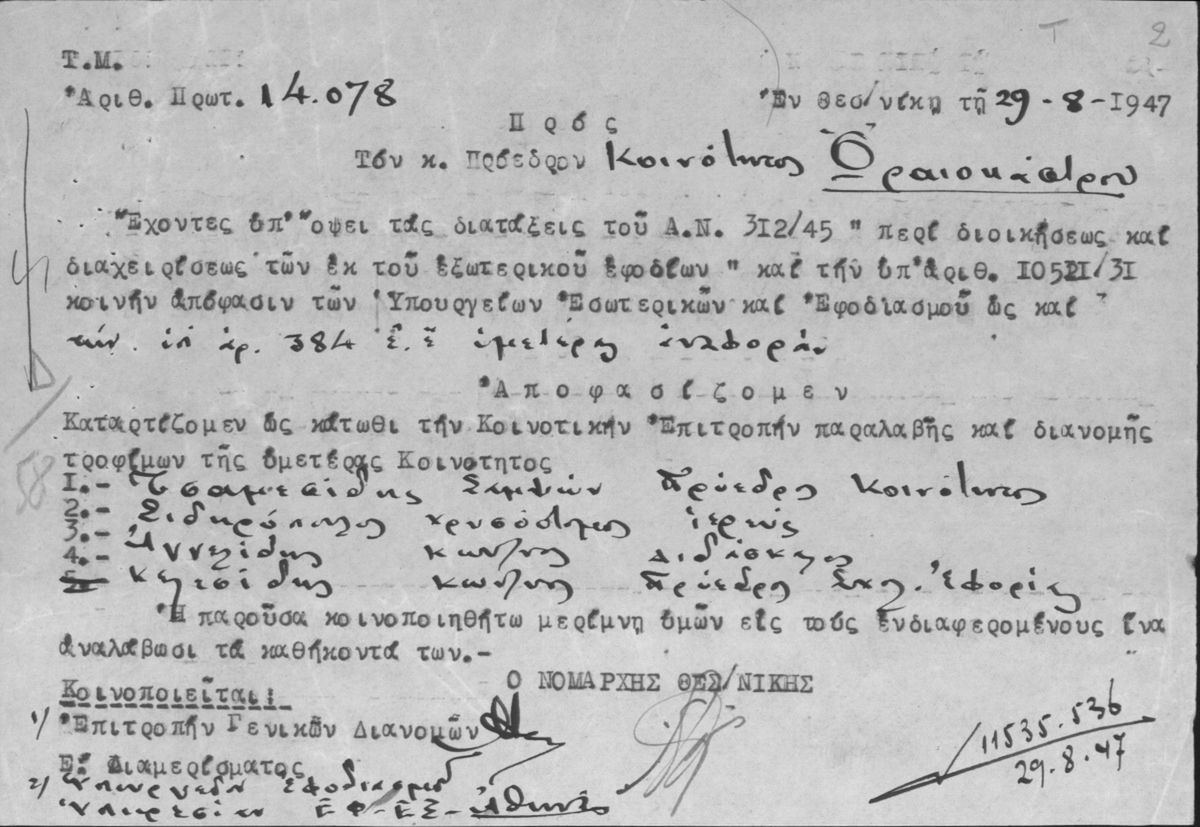 Τ 2
Τ.Μ.
Ἀριθ. Πρωτ. 14.078 Ἐν Θεσ/νίκῃ τῇ 29-8-1947
Πρός
Τόν κ. Πρόεδρον Κοινότητος Ὡραιοκάστρου
Ἔχοντες ὑπ' ὄψει τάς διατάξεις τοῦ Α.Ν. 312/45 " περί διοικήσεως καί
διαχειρίσεως τῶν ἐκ τοῦ ἐξωτερικοῦ ἐφοδίων " καί τήν ὑπ'ἀριθ. 10521/31
κοινήν ἀπόφασιν τῶν Ὑπουργείων Ἐσωτερικῶν καί Ἐφοδιασμοῦ ὡς καί
τήν ὑπ' ἀρ. 384 ἐ.ἔ ὑμετέραν ἀναφοράν
Ἀποφασίζομεν
Καταρτίζομεν ὡς κάτωθι τήν Κοινοτικήν Ἐπιτροπήν παραλαβῆς καί διανομῆς
τροφίμων τῆς ὑμετέρας Κοινότητος
58
1.- Τσαμεσίδης Σαμψών Πρόεδρος Κοινότητος
2.- Σιδηρόπουλος Χρυσόστομος ἱερεύς
3.- Κων/νος Διδάσκαλος
4.- Κελεσίδης Κων/νος Πρόεδρος Σχολ. Ἐφορίας
Ἡ παροῦσα κοινοποιηθήτω μερίμνῃ ὑμῶν εἰς τούς ἐνδιαφερομένους ἵνα
ἀναλάβωσι τά καθήκοντά των.-
Ο ΝΟΜΑΡΧΗΣ ΘΕΣ/ΝΙΚΗΣ
Κοινοποιεῖται:
1) Ἐπιτροπήν Γενικῶν Διανομῶν
Ε! Διαμερίσματος
2) Ὑπουργεῖον Ἐφοδιασμοῦ
Ὑπηρεσίαν ΕΦ-ΕΞ- Ἀθήνας
11535.536
29.8.47